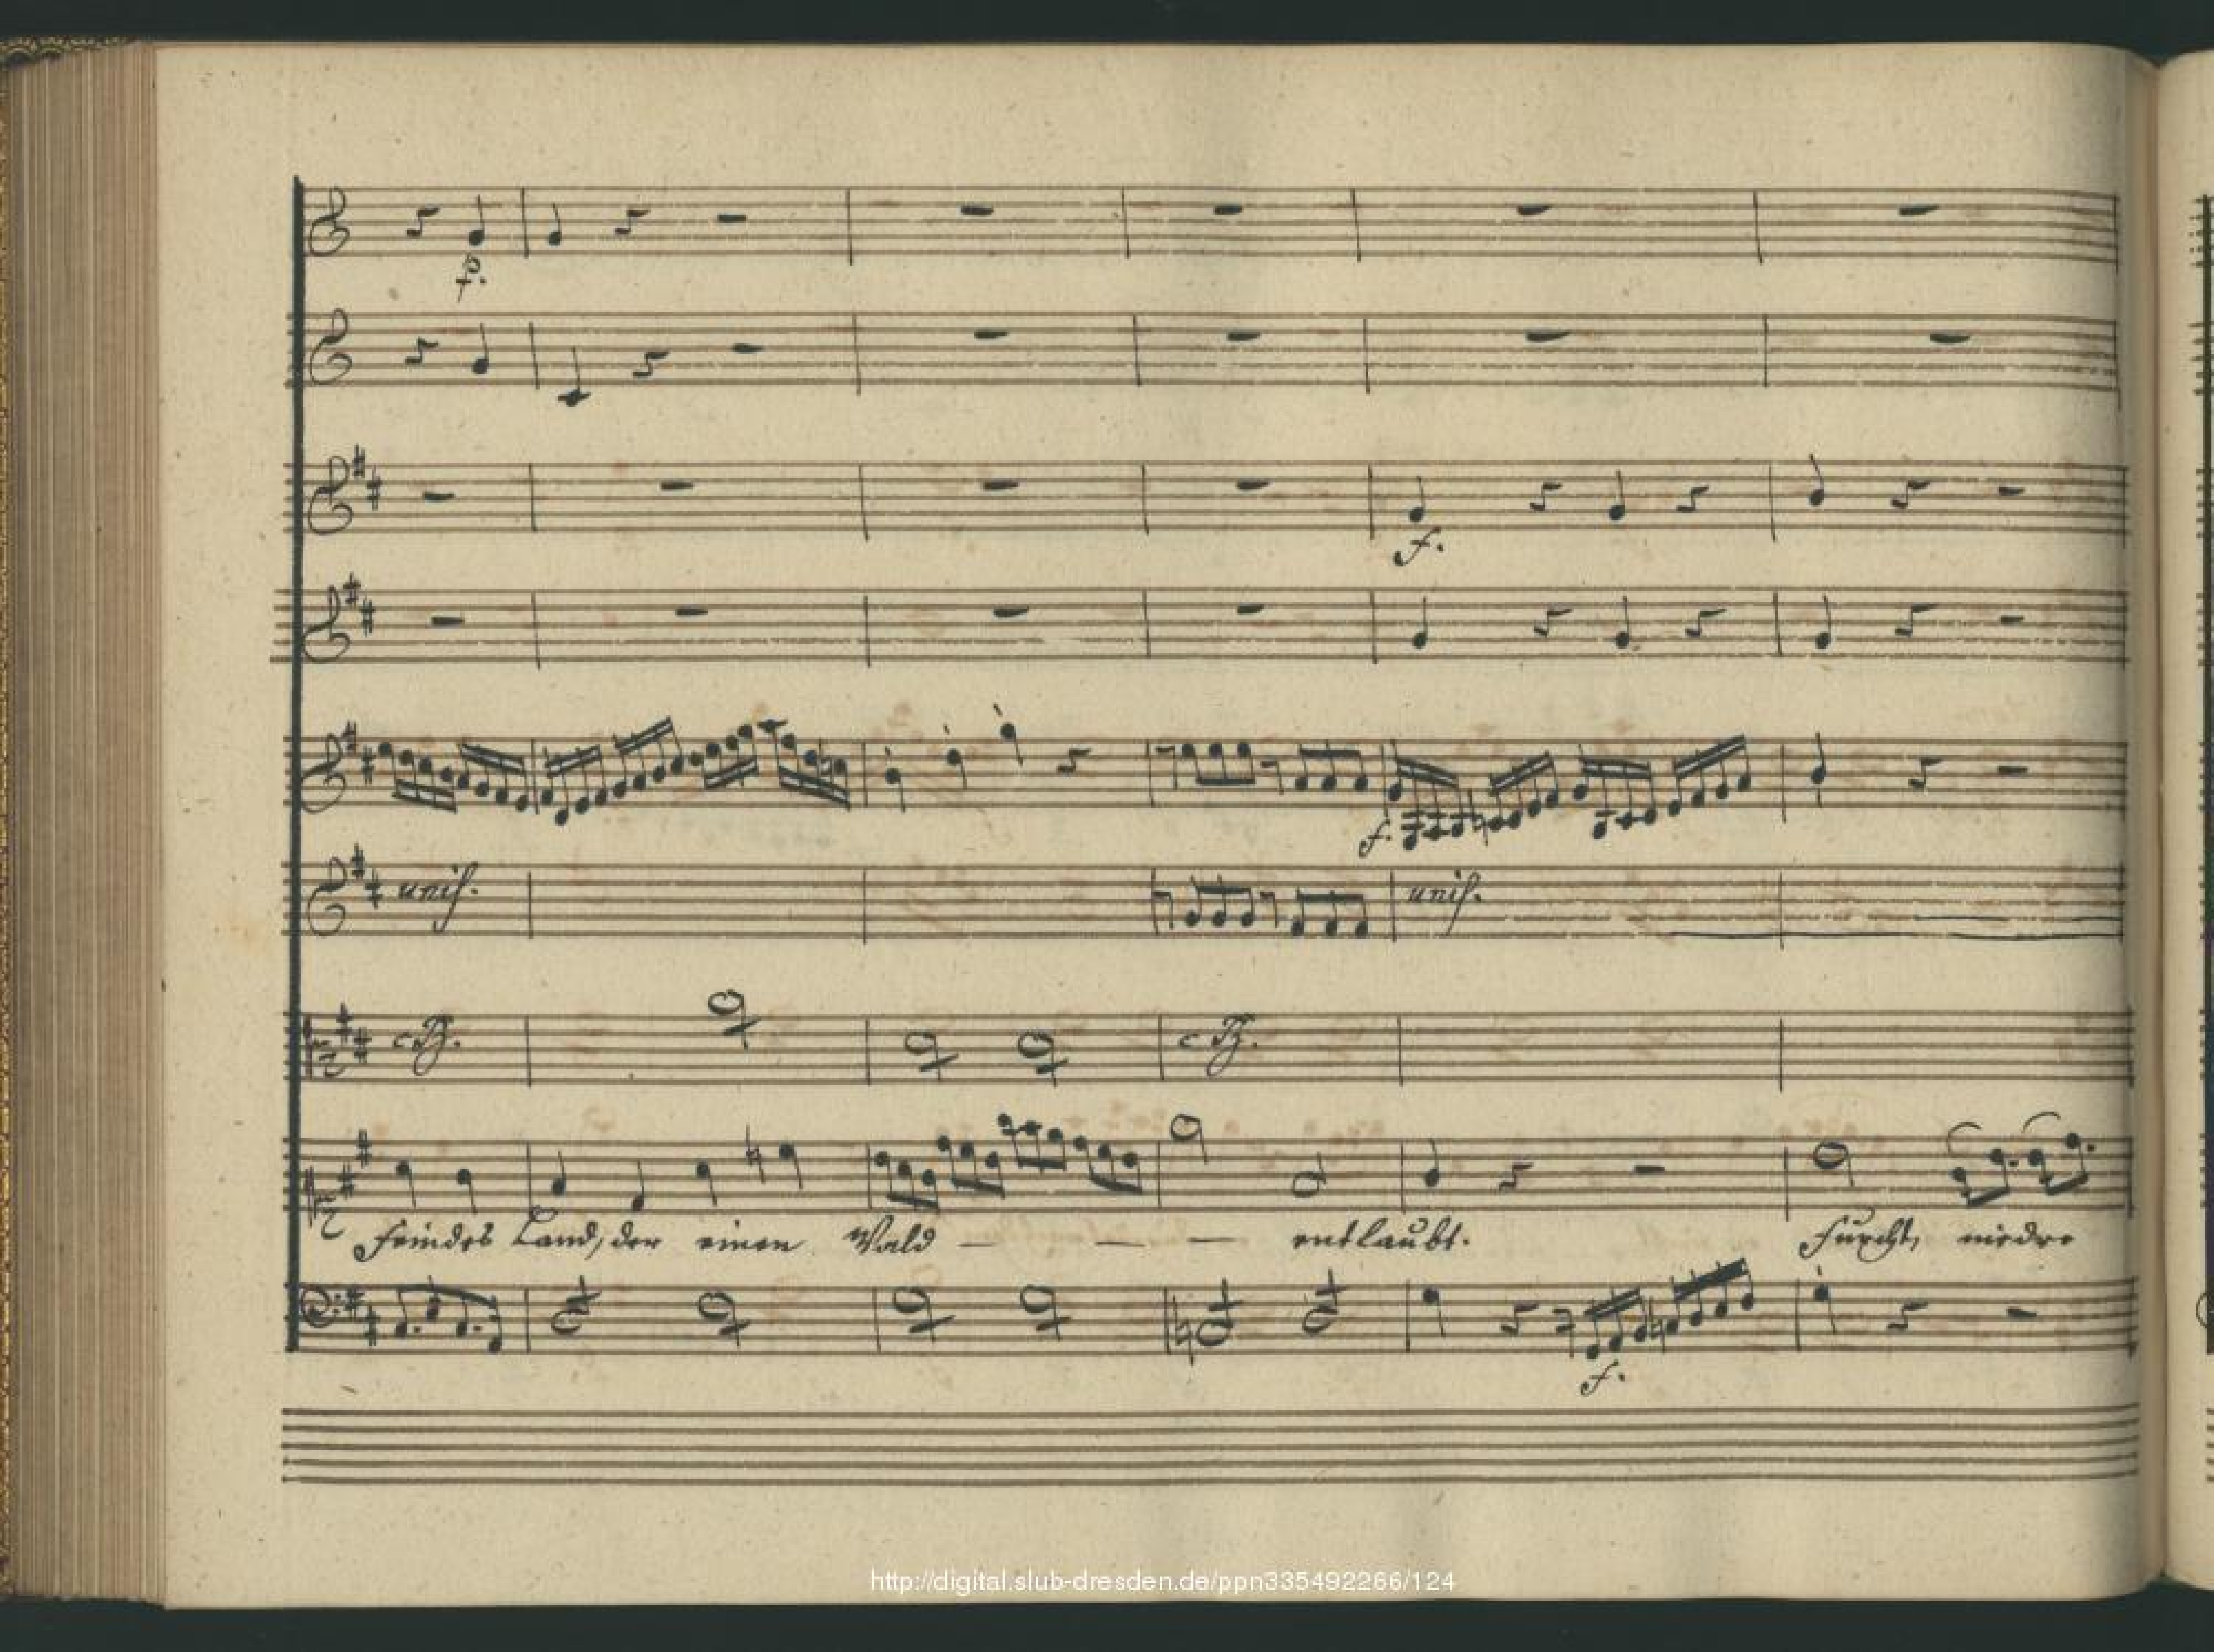 p.
f.
f.
unis. unis.
cB. cB.
Feindes Land, der einen Wald — — — entlaubt. Furcht, niedre
f.
http://digital.slub-dresden.de/ppn335492266/124